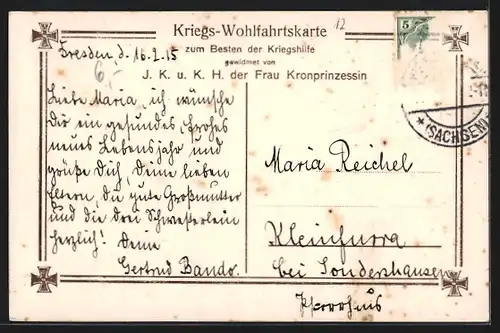 Kriegs-Wohlfahrtskarte
zum Besten der Kriegshilfe
gewidmet von
J. K. u. K. H. der Frau Kronprinzessin
12
5
Dresden d. 16.2.15
6,-
Liebe Maria, ich wünsche
Dir ein gesundes, frohes
neues Lebensjahr und
grüße Dich, Deine lieben
Eltern, die gute Großmutter
und die drei Schwesterlein
herzlich! Deine
Gertrud Bando.
(SACHSEN)
Maria Reichel
Kleinfurra
bei Sondershausen
Pfarrhaus